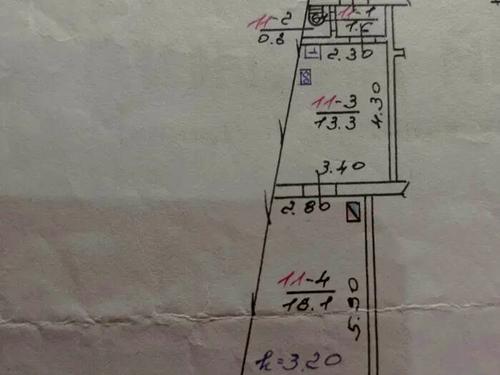 11-2
0.8
11-1
2.30
11-3
13.3
4.30
3.40
2.80
11-4
18.1
5.90
h=3.20